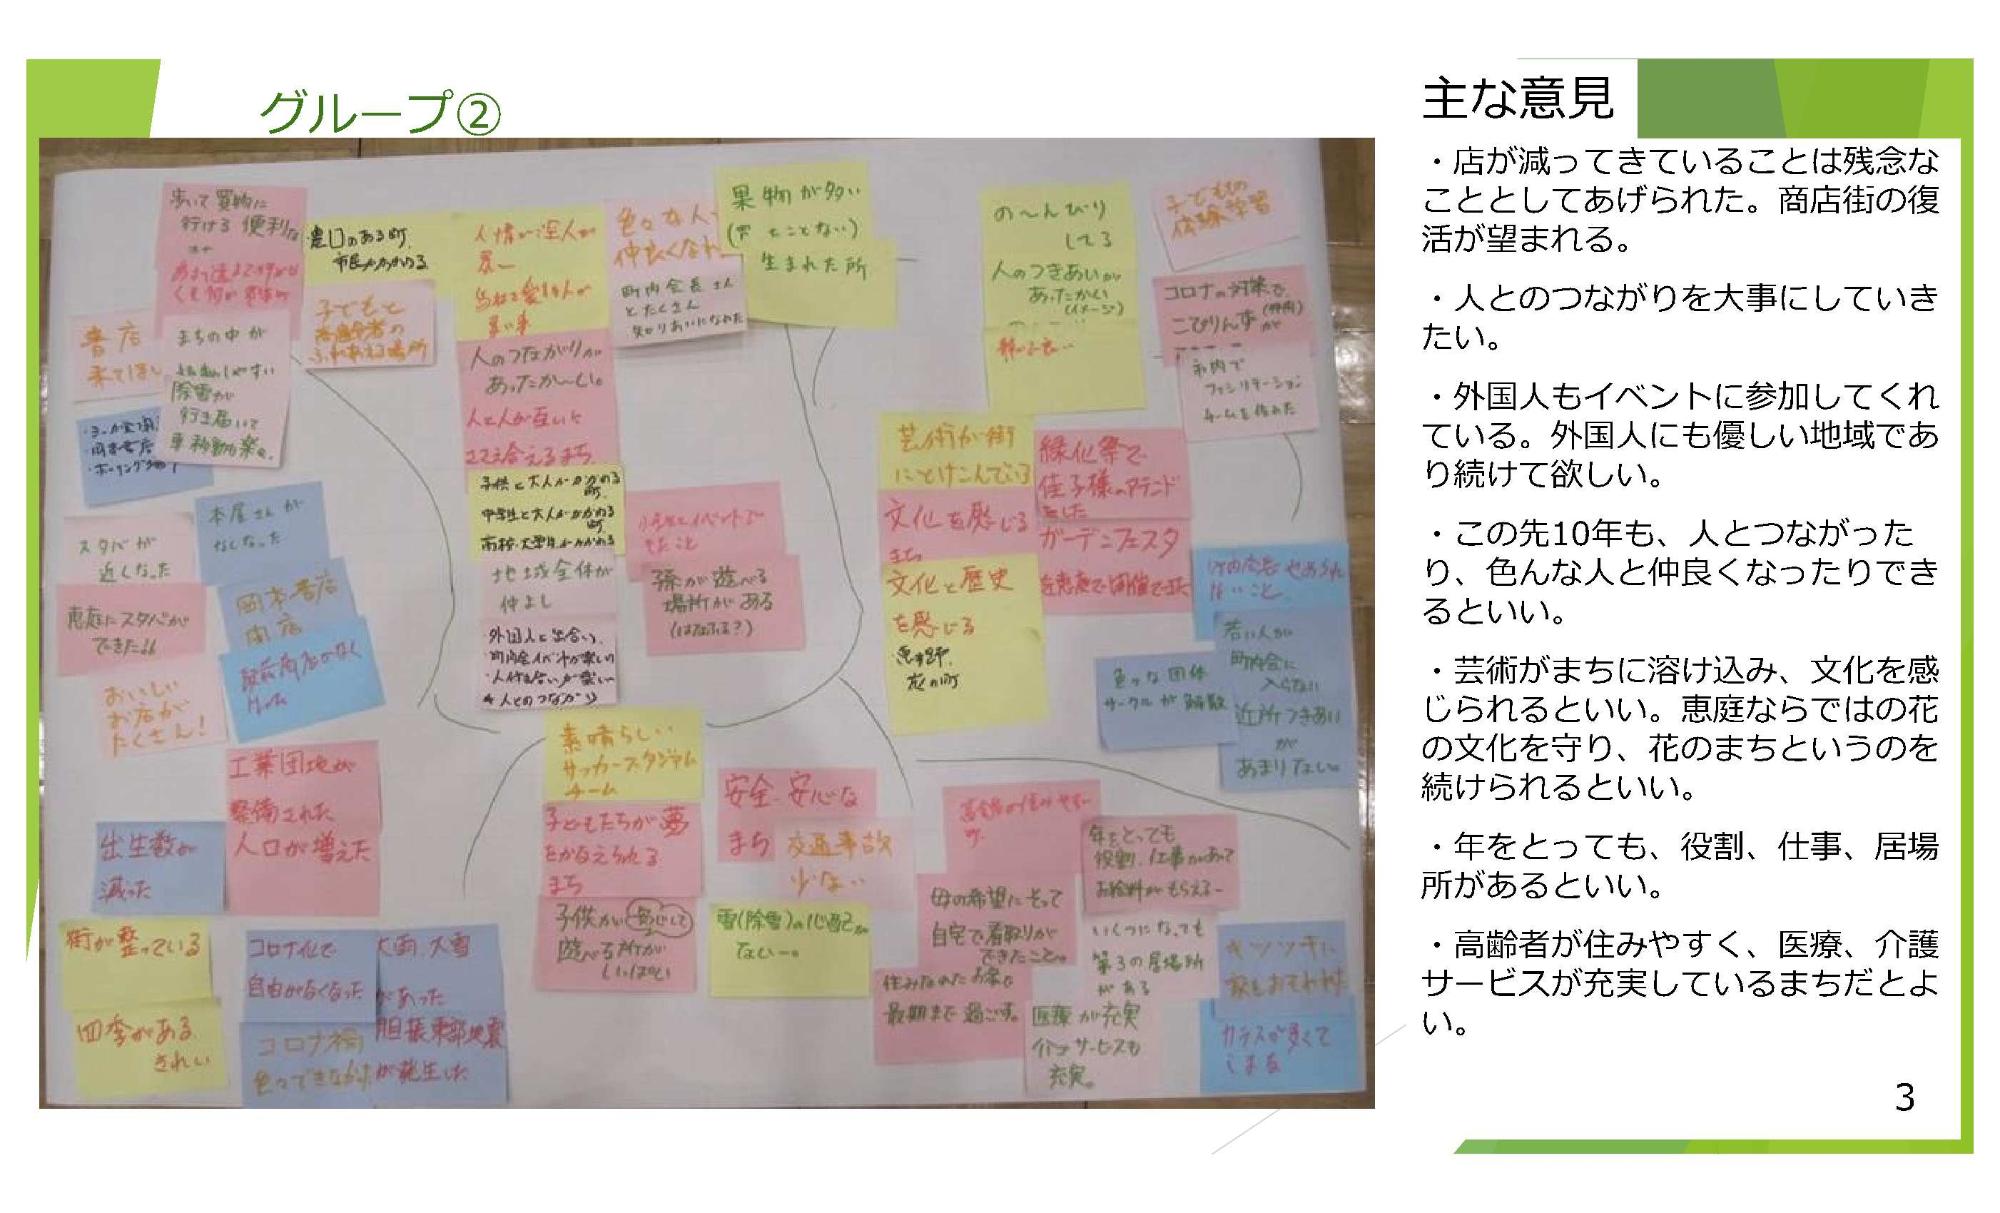 グループ②
主な意見
・店が減ってきていることは残念な
こととしてあげられた。商店街の復
活が望まれる。
・人とのつながりを大事にしていき
たい。
・外国人もイベントに参加してくれ
ている。外国人にも優しい地域であ
り続けて欲しい。
・この先10年も、人とつながった
り、色んな人と仲良くなったりでき
るといい。
・芸術がまちに溶け込み、文化を感
じられるといい。恵庭ならではの花
の文化を守り、花のまちというのを
続けられるといい。
・年をとっても、役割、仕事、居場
所があるといい。
・高齢者が住みやすく、医療、介護
サービスが充実しているまちだとよ
い。
3
歩いて買物に
行ける 便利な
まちの中が
除雪が
行き届いて
車移動も楽。
子どもと
高齢者の
ふれあえる場所
書店
本屋さんが
なくなった
スタバが
近くなった
恵庭にスタバが
できた!!
岡本書店
閉店
おいしい
お店が
たくさん!
工業団地が
整備された
人口が増えた
出生数が
減った
街が整っている
四季がある
きれい
コロナ化で
自由がなくなった
コロナ禍
大雨、大雪
があった
胆振東部地震
が発生した
人のつながりが
あったか〜い。
人と人が互いに
支え合えるまち
子供と大人がかかわる
町
中学生と大人がかかわる
町
地域全体が
仲よし
外国人と出会い
町内会イベントが楽しい
・人付き合いが楽しい
★人とのつながり
色々な人と
仲良くなれ
町内会長さん
とたくさん
知りあいになれた
果物が多い
生まれた所
孫が遊べる
場所がある
(はなふる?)
の〜んびり
してる
人のつきあいが
あったかい
(イメージ)
子どもの
体験学習
コロナの対策で
市内で
ファシリテーション
チームを作れた
芸術が街
にとけこんでいる
文化を感じる
まち
文化と歴史
を感じる
恵み野
花の町
緑化祭で
佳子様のアテンド
をした
ガーデンフェスタ
色々な団体
サークルが解散
若い人が
町内会に
入らない
近所づきあい
が
あまりない。
素晴らしい
サッカースタジアム
チーム
子どもたちが夢
をかなえられる
まち
子供が安心して
遊べる所が
いっぱい
安全、安心な
まち
交通事故
少ない
雪(除雪)の心配が
ない〜。
年をとっても
役割、仕事があって
お給料がもらえる〜
母の希望にそって
自宅で看取りが
できたこと。
住みなれたお家で
最期まで過ごす。
いくつになっても
第3の居場所
がある
医療が充実
介ゴサービスも
充実。
カラスが多くて
こまる